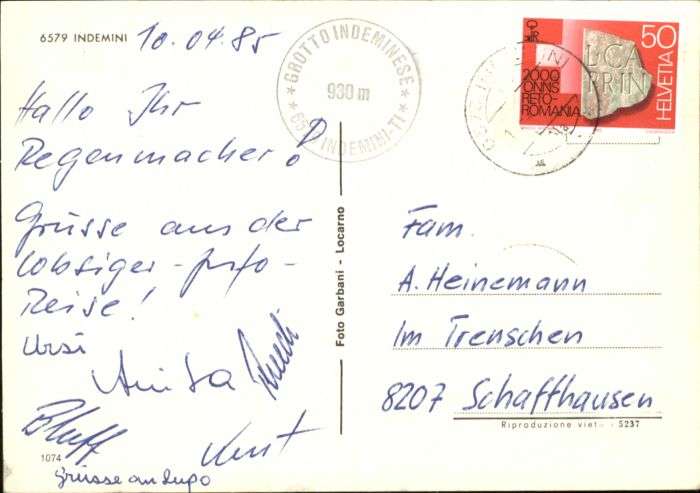 6579 INDEMINI
10.04.85
Hallo Ihr
Regenmacher!
Grüsse aus der
Lobsiger-Info-
Reise!
Ursi
Anita Ruedi
Kurt
1074
Grüsse an Lupo
* GROTTO INDEMINESE *
930 m
* 6579 INDEMINI-TI *
50
HELVETIA
2000
ONNS
RETO-
ROMANIA
L·CA
PRIN
Foto Garbani - Locarno
Fam.
A. Heinemann
Im Trenschen
8207 Schaffhausen
Riproduzione viet. - 5237